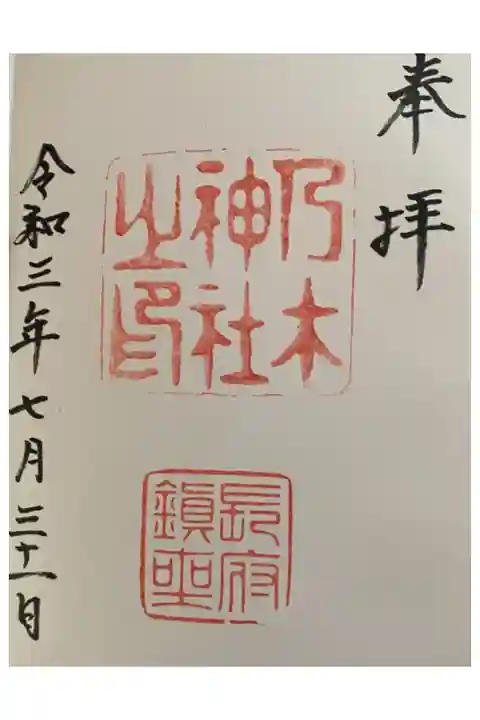 奉拝
乃木
神社
之印
長府
鎮
令和三年七月三十一日